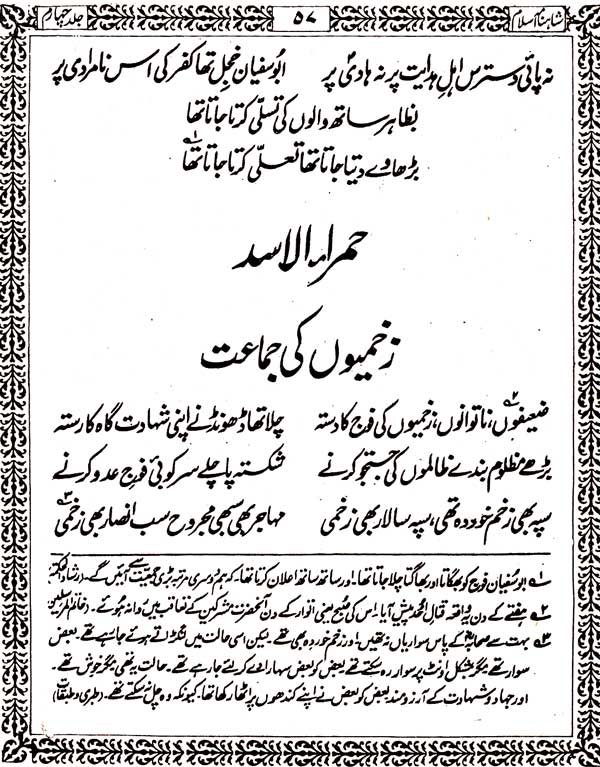 شاہنامہ اسلام ۵۷ جلد چہارم
نہ پائی دسترس اہلِ ہدایت پر نہ ہادیؐ پر ابوسفیان خجل تھا کفر کی اس نامرادی پر
بظاہر ساتھ والوں کی تسلی کرتا جاتا تھا
بڑھاوے دیتا جاتا تھا تعلّی کرتا جاتا تھا ۱
حمراء الاسد
زخمیوں کی جماعت
ضعیفوں ۲، ناتوانوں، زخمیوں کی فوج کا دستہ چلا تھا ڈھونڈنے اپنی شہادت گاہ کا رستہ
بڑھے مظلوم بندے ظالموں کی جستجو کرنے شکستہ پا چلے سرکوبیٔ فوجِ عدو کرنے
سپہ بھی زخم خوردہ تھی، سپہ سالار بھی زخمی مہاجر بھی سبھی مجروح سب انصار بھی زخمی ۳
۱ ابوسفیان فوج کو بھگاتا اور بھاگتا چلا جاتا تھا۔ اور ساتھ ساتھ اعلان کرتا تھا۔ کہ ہم دوسری مرتبہ بڑی جمعیت سے آئیں گے۔
۲ ہفتے کے دن یہ واقعہ قتال اُحد پیش آیا۔ اس کی صبح یعنی اتوار کے دن آنحضرت مشرکین کے تعاقب میں روانہ ہوئے۔ (خاتم المرسلین)
۳ بہت سے صحابہؓ کے پاس سواریاں نہ تھیں۔ اور زخم خوردہ بھی تھے۔ لیکن اسی حالت میں لنگڑاتے ہوئے جا رہے تھے۔ بعض
سوار تھے مگر بمشکل اونٹ پر سوار رہ سکتے تھے بعض کو بعض سہارا دے کر لئے جا رہے تھے۔ حالت یہ تھی مگر خوش تھے۔
اور جہاد و شہادت کے آرزومند بعض کو بعض نے اپنے کندھوں پر اٹھا رکھا تھا۔ کیونکہ وہ چل نہ سکتے تھے۔ (طبری و طبقات)